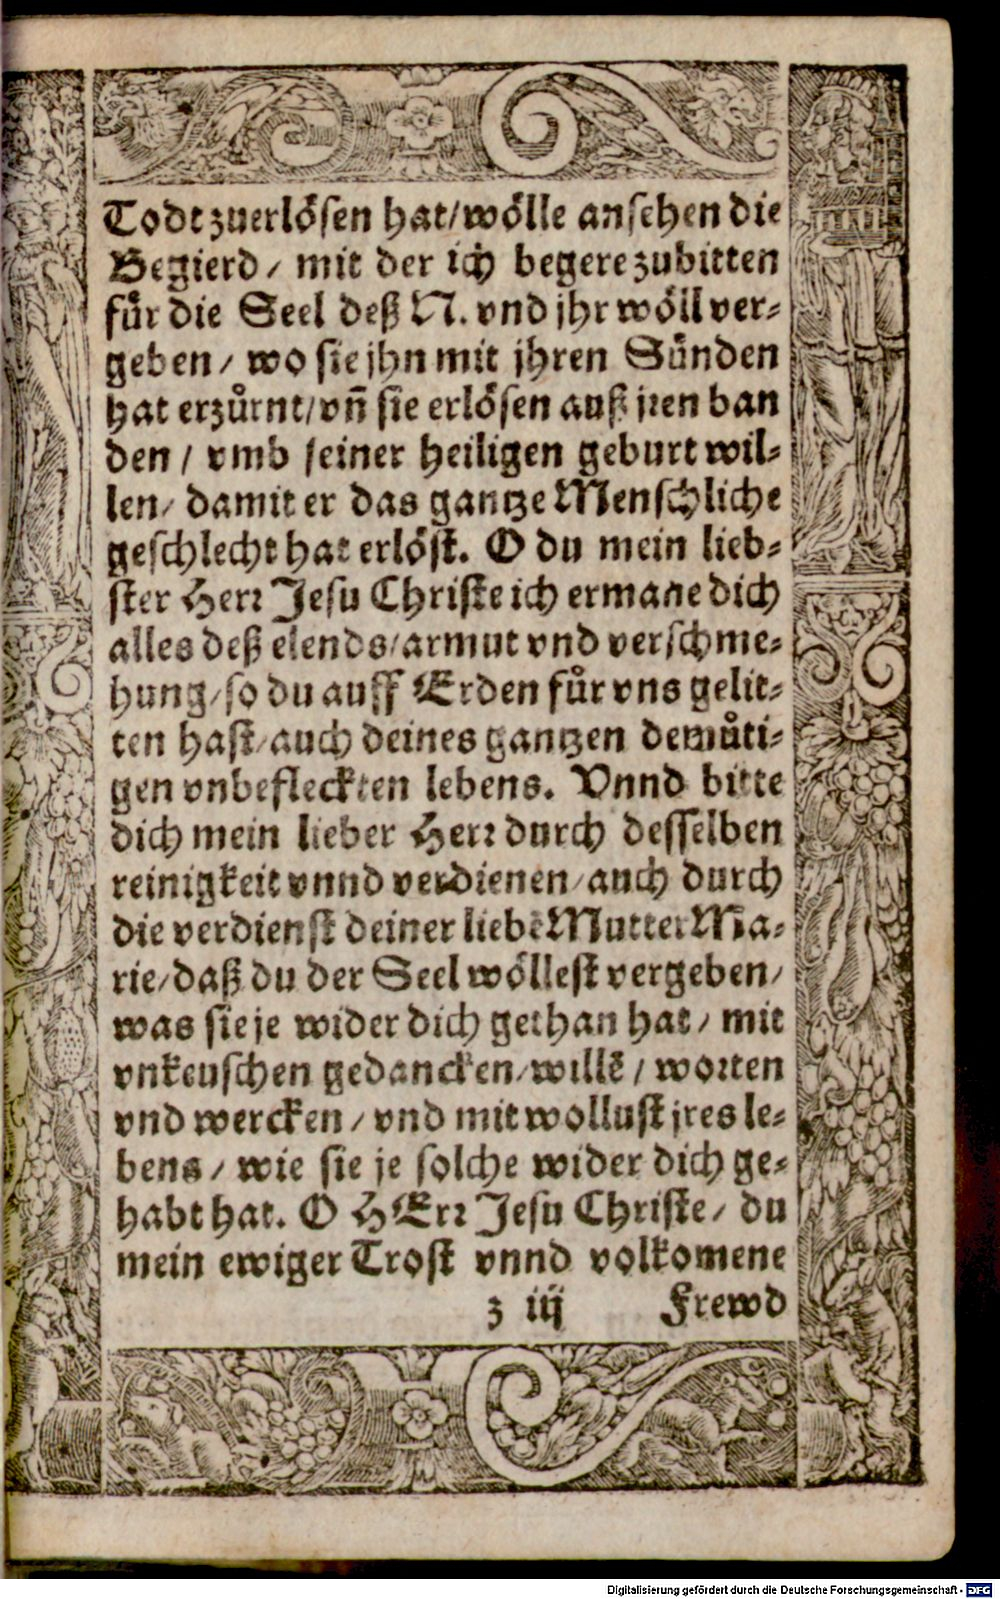 Todt zuerlösen hat/ wölle ansehen die
Begierd/ mit der ich begere zubitten
fůr die Seel deß N. vnd jhr wöll ver⸗
geben/ wo sie jhn mit jhren Sünden
hat erzůrnt/ vñ sie erlösen auß jren ban
den/ vmb seiner heiligen geburt wil⸗
len/ damit er das gantze Menschliche
geschlecht hat erlöst. O du mein lieb⸗
ster Herr Jesu Christe ich ermane dich
alles deß elends/ armut vnd verschme⸗
hung/ so du auff Erden fůr vns gelit⸗
ten hast/ auch deines gantzen demůti⸗
gen vnbefleckten lebens. Vnnd bitte
dich mein lieber Herr durch desselben
reinigkeit vnnd verdienen/ auch durch
die verdienst deiner liebē Mutter Ma⸗
rie/ daß du der Seel wöllest vergeben/
was sie je wider dich gethan hat/ mit
vnkeuschen gedancken/ willē/ worten
vnd wercken/ vnd mit wollust jres le⸗
bens/ wie sie je solche wider dich ge⸗
habt hat. O HErr Jesu Christe/ du
mein ewiger Trost vnnd volkomene
z iij Frewd
Digitalisierung gefördert durch die Deutsche Forschungsgemeinschaft - DFG